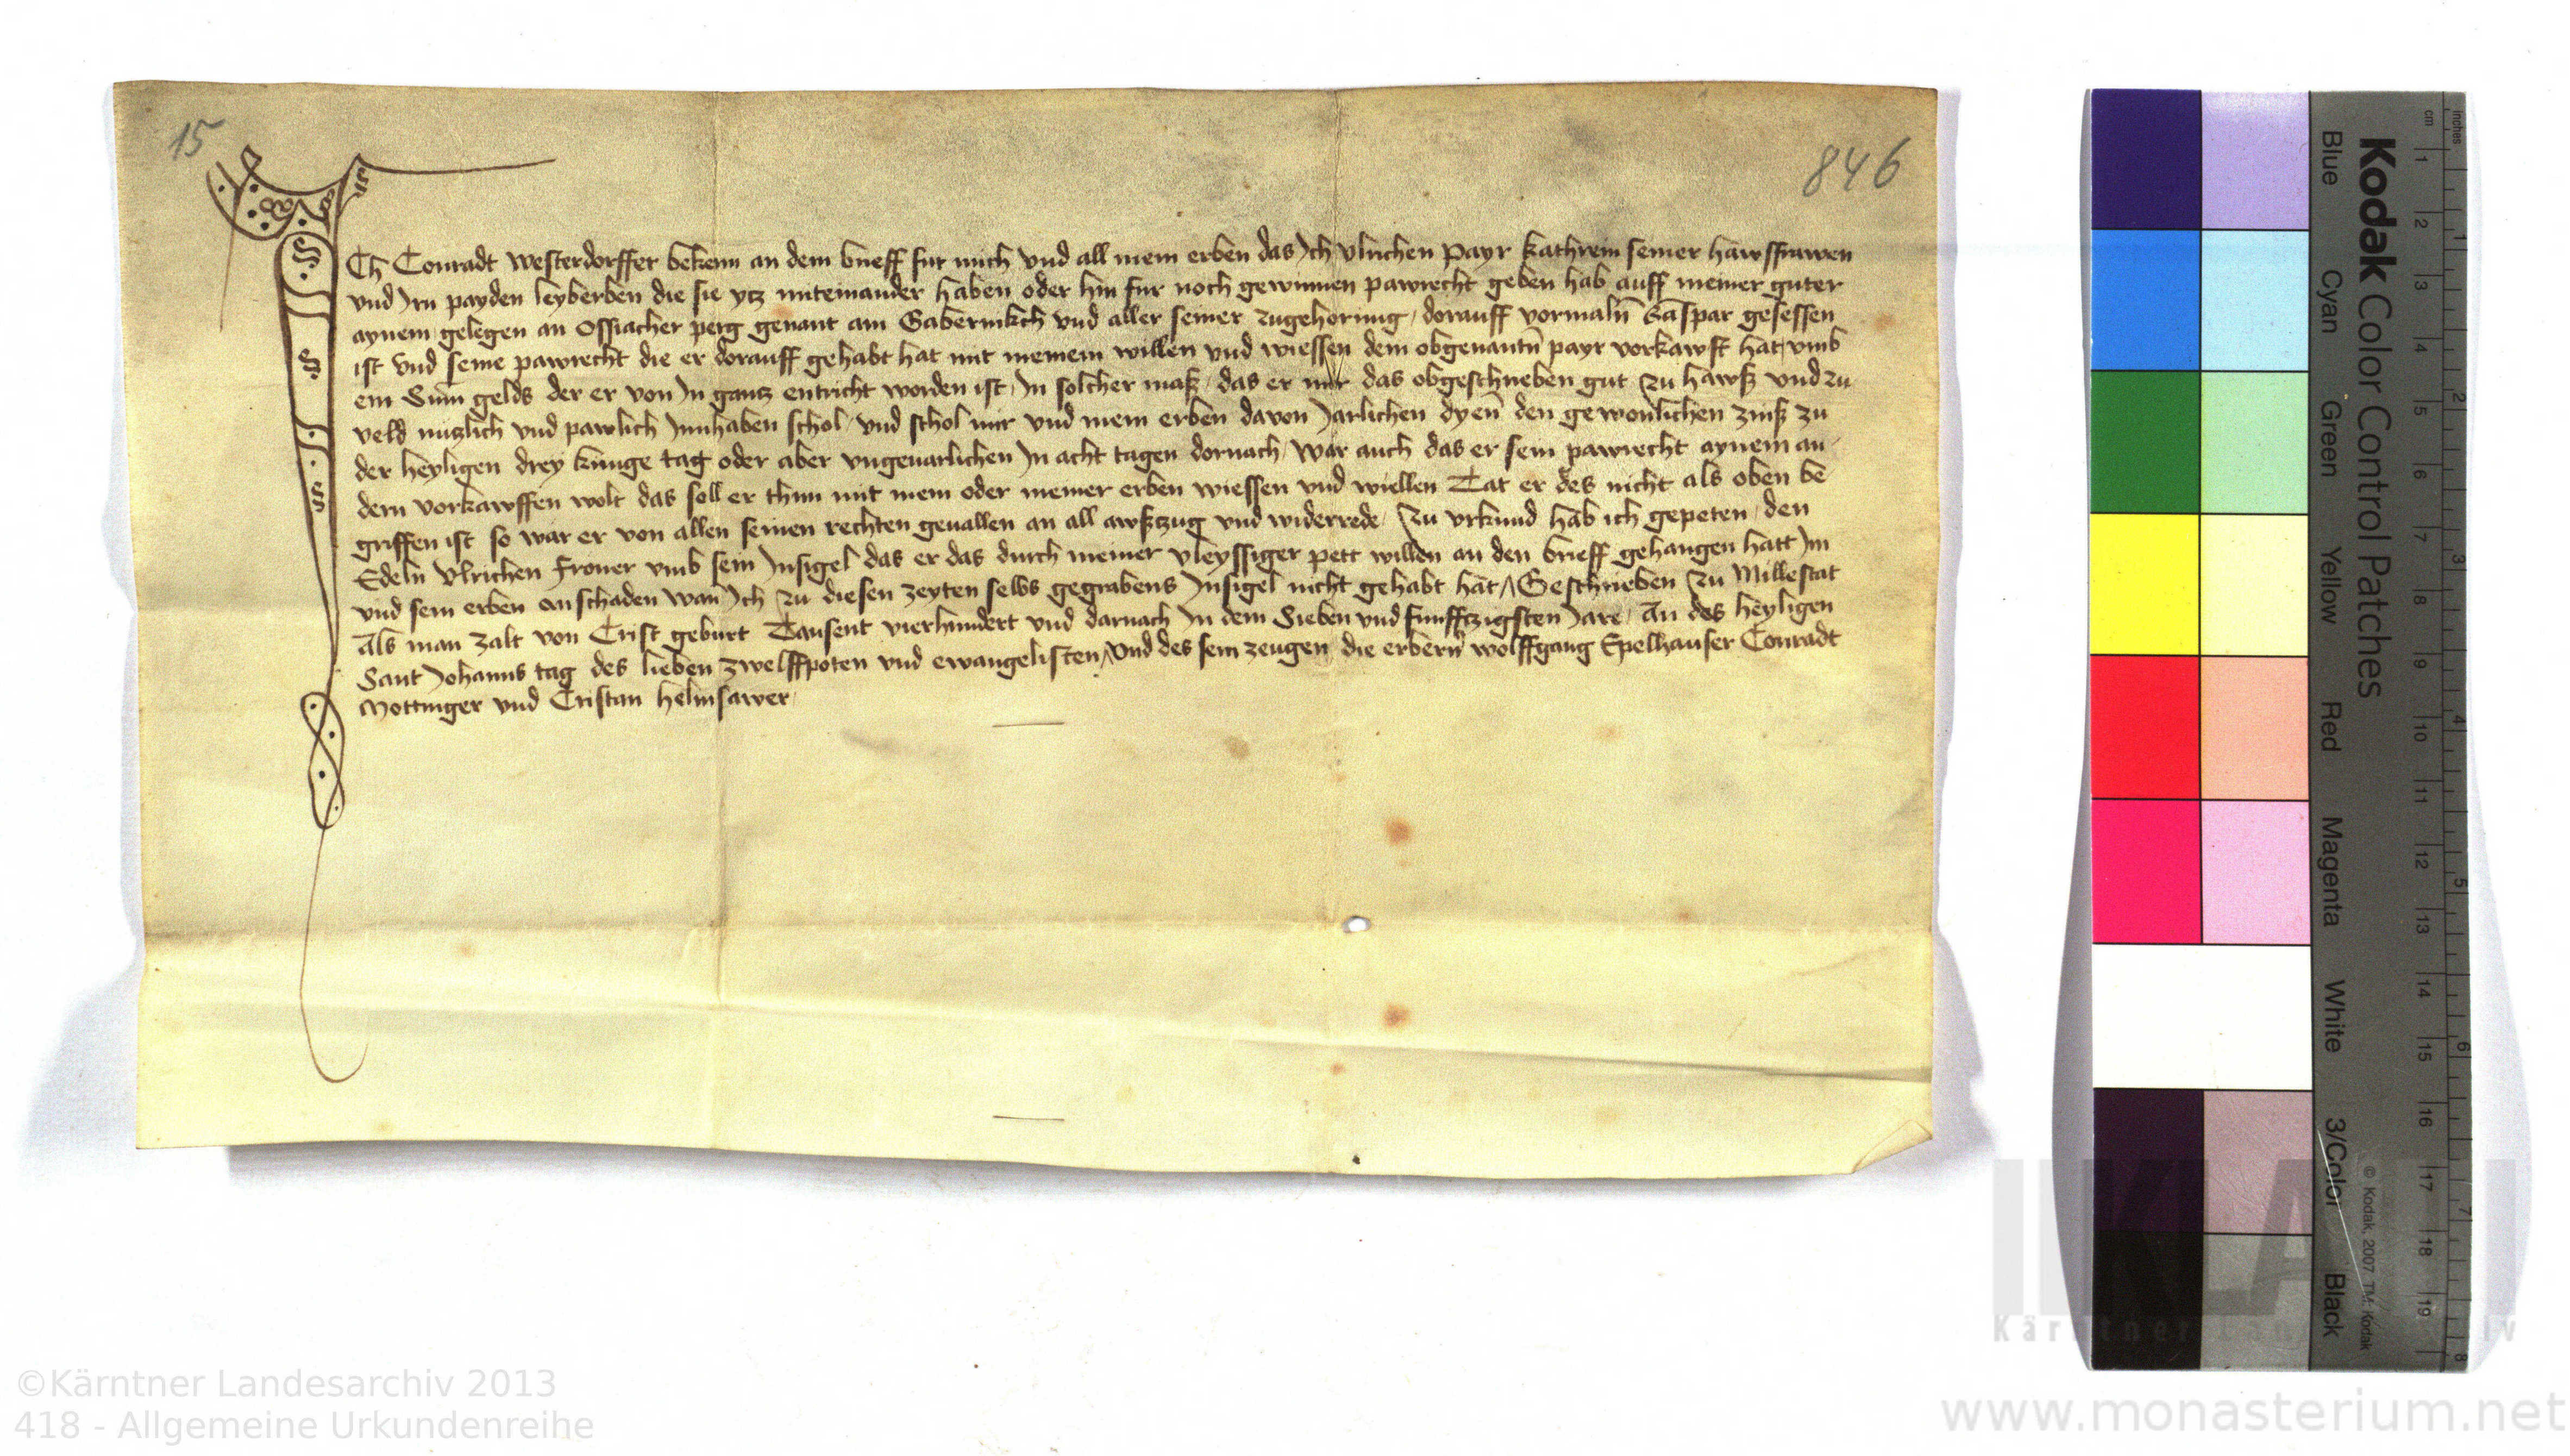 15
846
ICh Conradt Westerdorffer bekenn an dem brieff fur mich vnd all mein erben das Ich Vlrichen Payr Kathrein seiner hawsfrawen
vnd Irn payden leyberben die sie ytz miteinander haben oder hin fur noch gewinnen pawrecht geben hab auff meiner guter
aynem gelegen an Ossiacher perg genant am Gabernikch vnd aller seiner zugehorung / dorauff vormaln̄ Caspar gesessen
ist vnd seine pawrecht die er dorauff gehabt hat mit meinem willen vnd wiessen dem obgenantn̄ payr vorkawft hat / vmb
ein Sum̄ gelds der er von In gantz entricht worden ist / In solcher maß / das er mir das obgeschrieben gut zu hawß vnd zu
veld nutzlich vnd pawlich Innhaben schol / vnd schol mir vnd mein erben davon Jarlichen dyen̄ den gewonlichen zinß zu
der heyligen drey kunge tag oder aber vngeuarlichen In acht tagen dornach / Wär auch das er sein pawrecht aynem an
dern vorkawffen wolt das soll er thun mit mein oder meiner erben wiessen vnd wiellen Tät er des nicht als oben be
griffen ist so wär er von allen seinen rechten geuallen an all awßtzug vnd widerrede / Zu vrkund hab ich gepeten / den
Edeln Vlrichen Froner vmb sein Insigel das er das durch meiner vleyssiger pett willen an den brieff gehangen hatt Im
vnd sein erben on schaden wan̄ Ich zu diesen zeyten selbs gegrabens Insigel nicht gehabt hät / Geschrieben zu Millestat
Als man zalt von Crist geburt Tausent vierhundert vnd darnach In dem Sieben vnd funfftzigsten Jare / An des heyligen
Sant Johanns tag des lieben zwelffpoten vnd ewangelisten / Vnd des sein zeugen die erbern̄ Wolffgang Epelhauser Conradt
Mottinger vnd Cristan Helmsawer
Kodak Color Control Patches
Blue Cyan Green Yellow Red Magenta White 3/Color Black
© Kodak, 2007 TM: Kodak
inches 1 2 3 4 5 6 7 8
cm 1 2 3 4 5 6 7 8 9 10 11 12 13 14 15 16 17 18 19
©Kärntner Landesarchiv 2013
418 - Allgemeine Urkundenreihe
www.monasterium.net